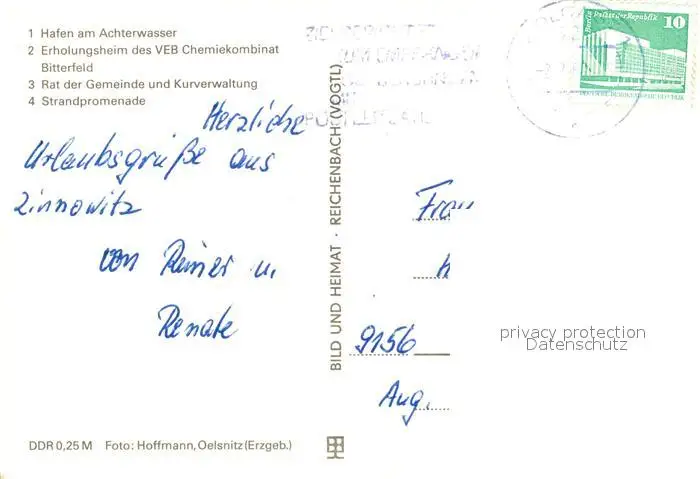 1 Hafen am Achterwasser
2 Erholungsheim des VEB Chemiekombinat
Bitterfeld
3 Rat der Gemeinde und Kurverwaltung
4 Strandpromenade
Herzliche
Urlaubsgrüße aus
Zinnowitz
von Reiner u.
Renate
DDR 0,25 M Foto: Hoffmann, Oelsnitz (Erzgeb.)
BILD UND HEIMAT · REICHENBACH (VOGTL)
Berlin Palast der Republik 10
DEUTSCHE DEMOKRATISCHE REPUBLIK
Frau
9156
Aug.
privacy protection
Datenschutz